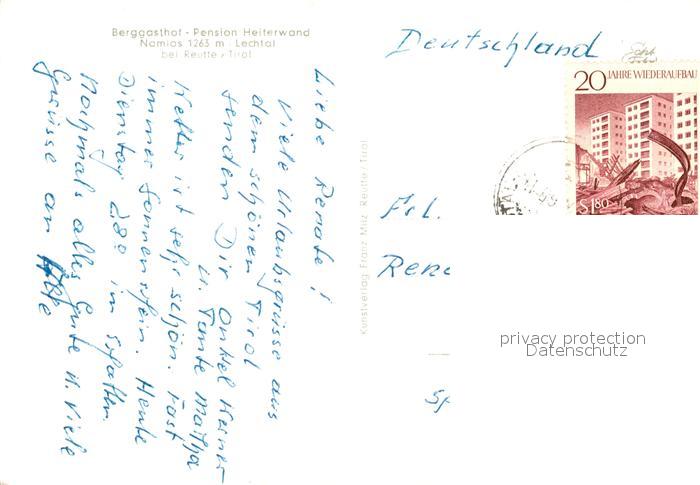 Berggasthof - Pension Heiterwand
Namlos 1263 m · Lechtal
bei Reutte/Tirol
Liebe Renate!
Viele Urlaubsgrüsse aus
dem schönen Tirol
senden Dir Onkel Werner
u. Tante Martha
Wetter ist sehr schön. Fast
immer Sonnenschein. Heute
Dienstag 28° im Schatten.
Nochmals alles Gute u. Viele
Grüsse an Alle
Kunstverlag Franz Milz, Reutte/Tirol
Deutschland
20 JAHRE WIEDERAUFBAU
S 1.80
Frl.
Rena
privacy protection
Datenschutz